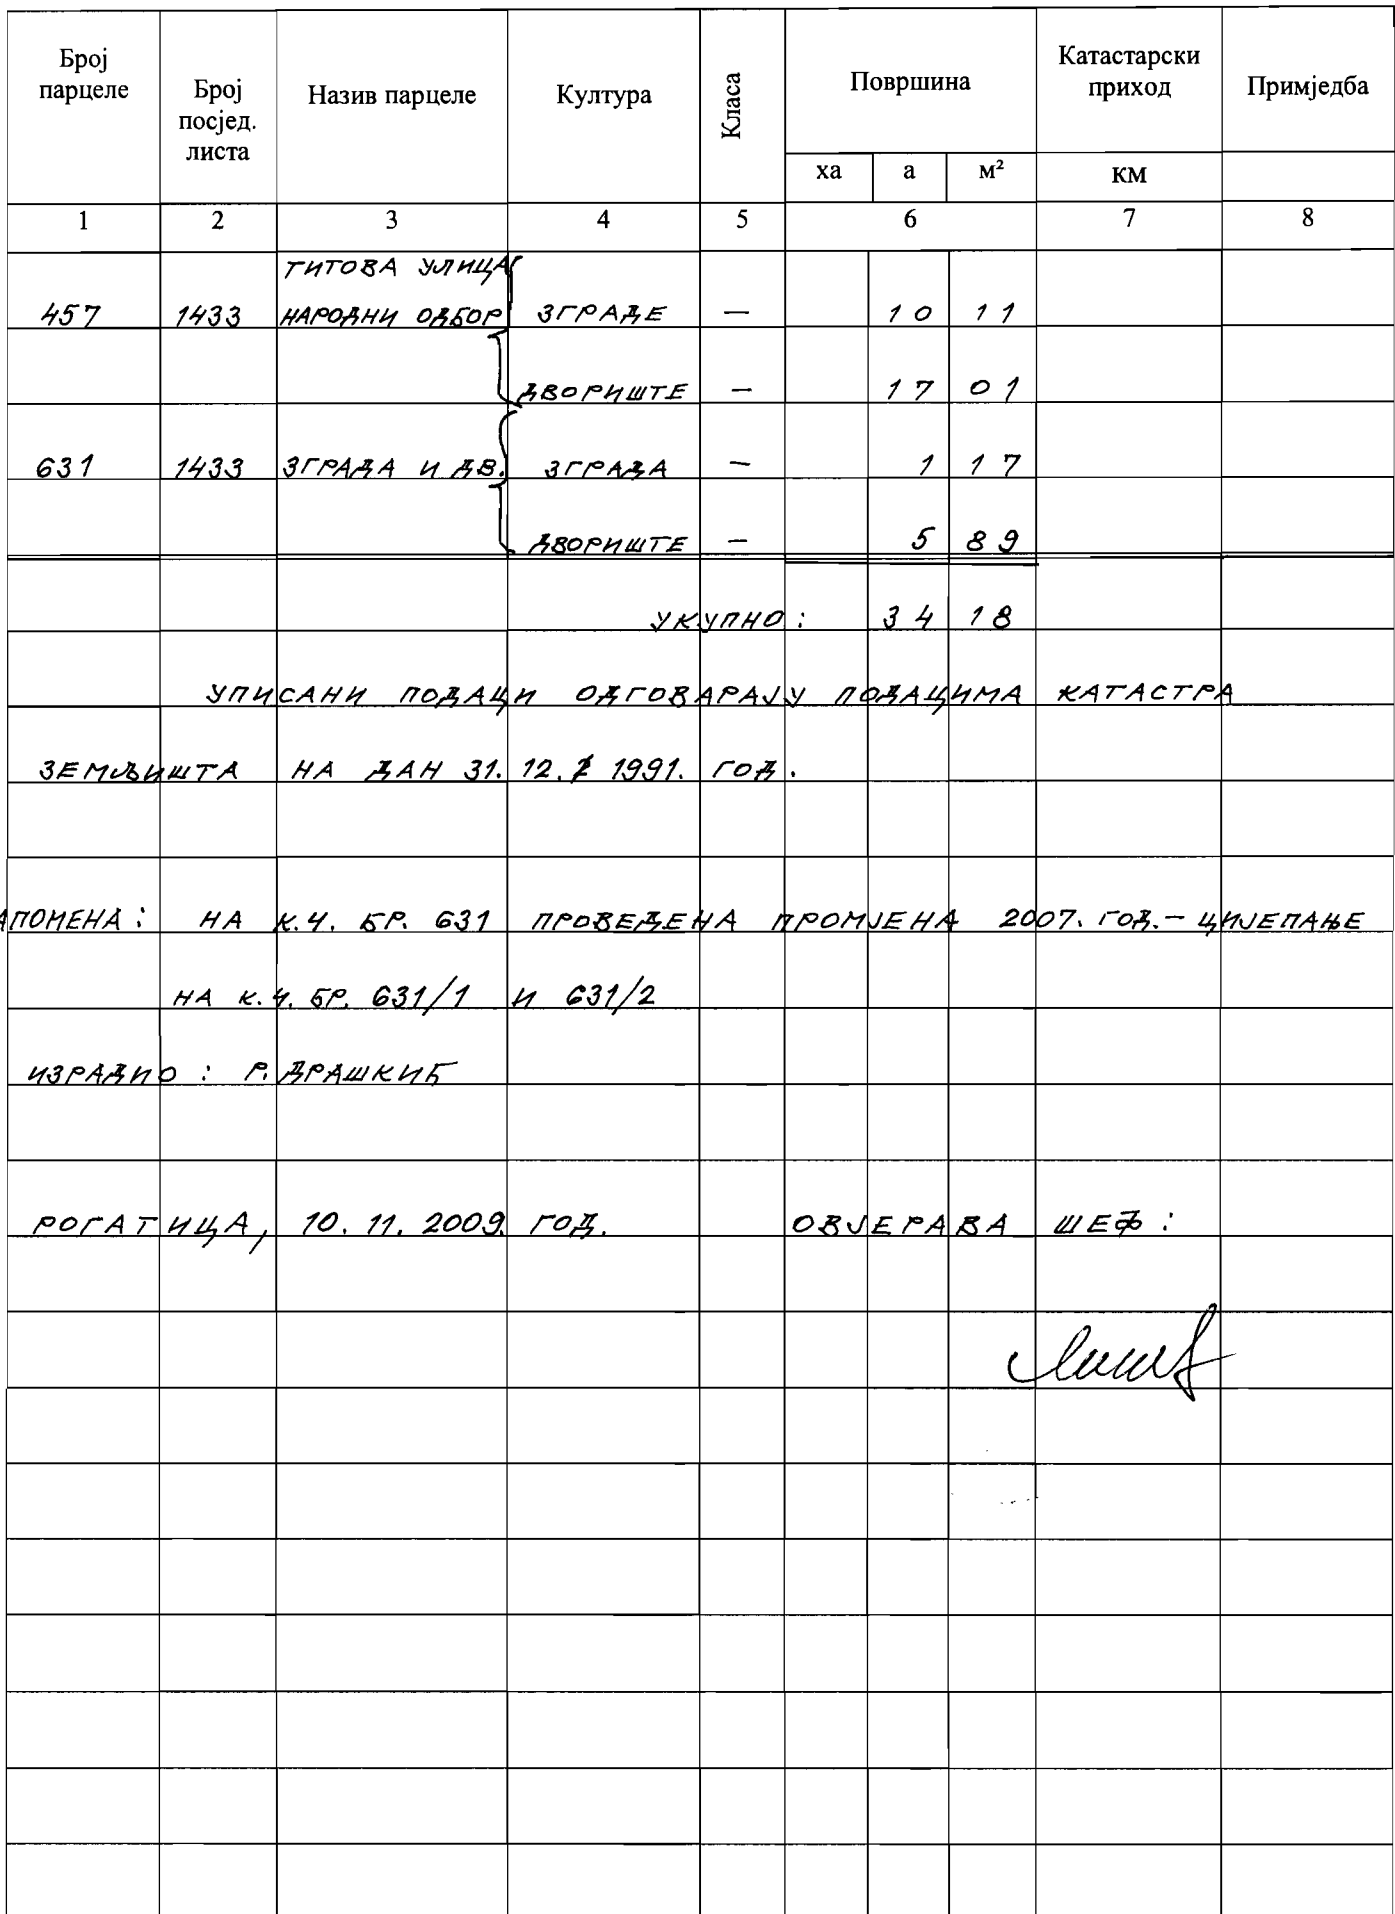 Број парцеле | Број посјед. листа | Назив парцеле | Култура | Класа | Површина | Катастарски приход | Примједба
ха | а | м² | КМ
1 | 2 | 3 | 4 | 5 | 6 | 7 | 8
ТИТОВА УЛИЦА
457 | 1433 | НАРОДНИ ОДБОР | ЗГРАДЕ | — | 10 | 11
ДВОРИШТЕ | — | 17 | 01
631 | 1433 | ЗГРАДА И ДВ. | ЗГРАДА | — | 1 | 17
ДВОРИШТЕ | — | 5 | 89
УКУПНО: 34 | 18
УПИСАНИ ПОДАЦИ ОДГОВАРАЈУ ПОДАЦИМА КАТАСТРА
ЗЕМЉИШТА НА ДАН 31. 12. 1991. ГОД.
АПОМЕНА: НА К.Ч. БР. 631 ПРОВЕДЕНА ПРОМЈЕНА 2007. ГОД. – ЦИЈЕПАЊЕ
НА К.Ч. БР. 631/1 И 631/2
ИЗРАДИО: Р. ДРАШКИЋ
РОГАТИЦА, 10. 11. 2009. ГОД. ОВЈЕРАВА ШЕФ: